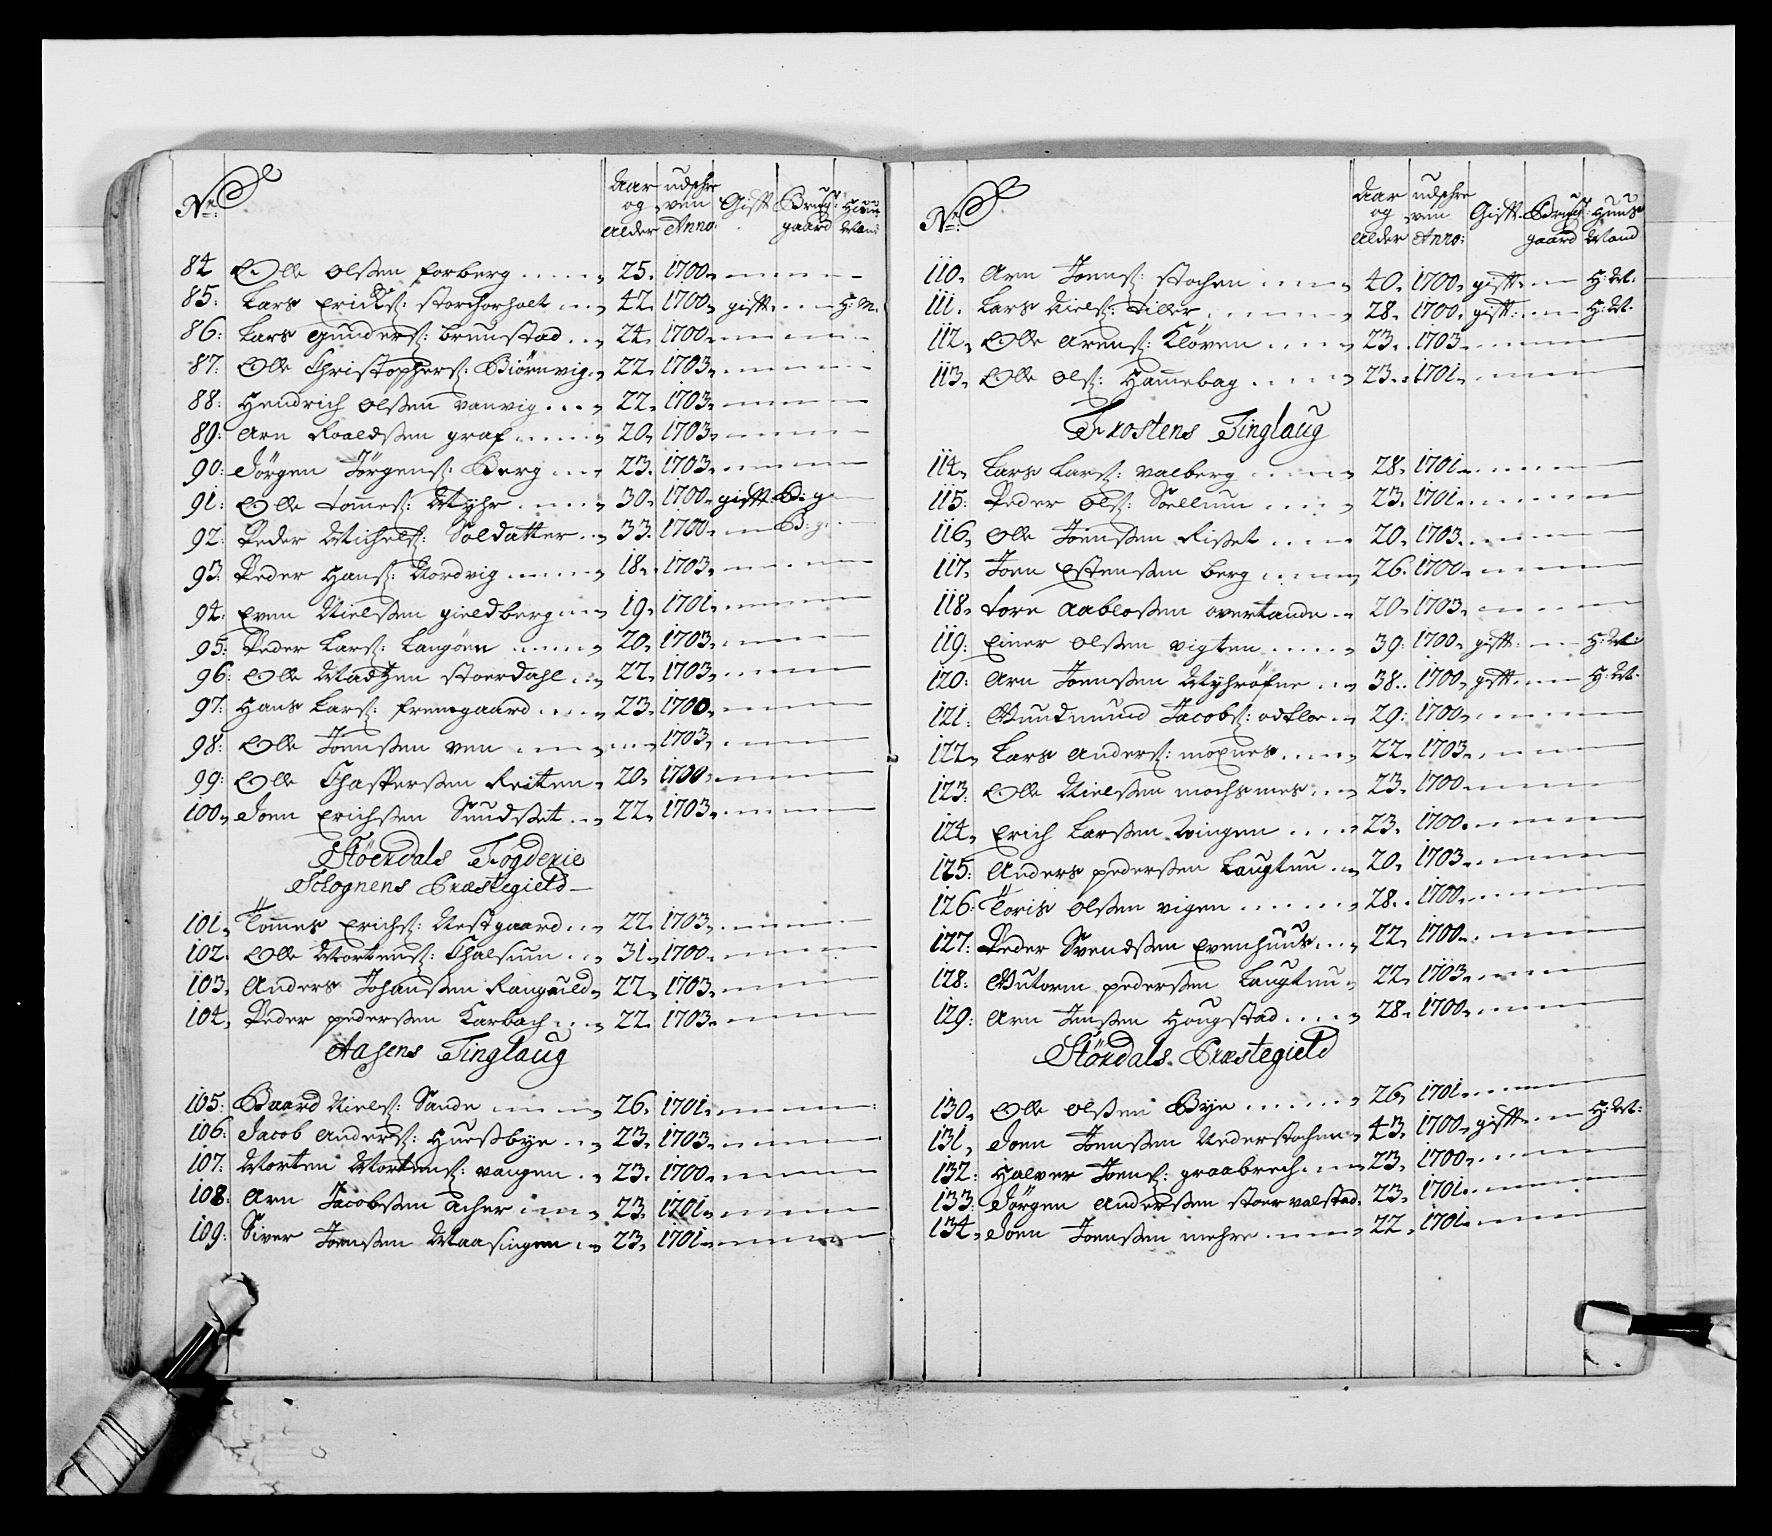 No: Aar og Alder udschreven Anno: Gifft Brug: gaard Huus Mand
84 Olle Olssen forberg 25. 1700
85: Lars Erichs: 42. 1700 gifft H: M.
86: Lars gunders: brunstad 24. 1700
87: Olle Christophers: Biörnvig 22. 1703
88: Hendrich Olssen vanvig 22. 1703
89: Arn Roaldssen graf 20. 1703
90: Jörgen Jörgens: Berg 23. 1703
91: Olle Tomes: Myhr 30. 1700 gifft B: g:
92: Peder Michels: Soldatter 33. 1700 B: g:
93: Peder Hans: Nordvig 18. 1703
94: Even Nielssen gieldberg 19. 1701
95: Peder Lars: Langöen 20. 1703
96: Olle Madtzen stoerdahl 22. 1703
97: Hans Lars: fremgaard 23. 1700
98: Olle Joenssen ven 1703
99: Olle Chasperssen Reiten 20. 1700
100. Joen Erichssen Sundset 22. 1703
Stöerdals Fögderie
Schognens Præstegield
101. Tomes Erichs: Nestgaard 22. 1703
102. Olle Mortens: Chalsium 31. 1700
103. Anders Johanssen Ranguld 22. 1703
104. Peder pederssen Karbach 22. 1703
Aasens Tinglaug
105: Baard Niels: Sande 26. 1701
106: Jacob Anders: Huessbye 23. 1703
107: Morten Mortens: vangen 23. 1700
108: Arn Jacobssen Acher 23. 1701
109: Siver Joenssen Maasingen 23. 1701
No: Aar og Alder udschreven Anno: Gifft Brug gaard Huus Mand
110. Arn Joens: stochen 40. 1700 gifft H: M:
111. Lars Niels: Tiller 28. 1700 gifft H: M:
112. Olle Arens: Klöven 23. 1703
113. Olle Ols: Hamebag 23. 1701
Frostens Tinglaug
114. Lars Lars: valberg 28. 1701
115: Peder Ols: Söellium 23. 1701
116. Olle Joenssen Risset 20. 1703
117. Joen Estenssen berg 26. 1700
118. Tore Aablossen overlande 20. 1703
119: Einer Olssen vigten 39: 1700 gifft H: M:
120: Arn Joenssen Myhröfne 38. 1700 gifft H: M:
121. Gundmund Jacobs: 29: 1700
122. Lars Anders: moxnes 22. 1703
123: Olle Nielssen mochsmes 23. 1700
124. Erich Larssen Wingen 23. 1700
125: Anders pederssen Laugtuu 20. 1703
126: Joris Olssen vigen 28. 1700
127: Peder Svendssen Evenhuus 22. 1700
128: Gutorm pederssen Laugtuu 22. 1703
129: Arn Jenssen Hougstad 28. 1700
Stördals Præstegield
130. Olle Olssen Bye 26. 1701
131. Joen Joenssen Nederstochen 43. 1700 gifft H: M:
132: Halver Joens: graabrech 23. 1700
133: Jörgen Anderssen stoervalstad 23. 1701
134. Joen Joenssen mehre 22. 1701